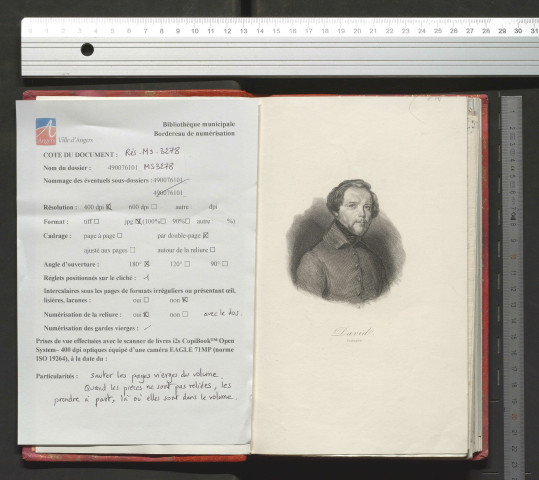 Bibliothèque municipale
Bordereau de numérisation
Angers Ville d'Angers
COTE DU DOCUMENT : Rés. MS. 3278
Nom du dossier : 490076101 MS3278
Nommage des éventuels sous-dossiers : 490076101
490076101
Résolution : 400 dpi ☒ 600 dpi ☐ autre : dpi
Format : tiff ☐ jpg ☒ (100% ☐ 90% ☐ autre %)
Cadrage : page à page ☐ par double-page ☒
ajusté aux pages ☐ autour de la reliure ☐
Angle d'ouverture : 180° ☒ 120° ☐ 90° ☐
Réglets positionnés sur le cliché : 1
Intercalaires sous les pages de formats irréguliers ou présentant œil,
lisières, lacunes : oui ☐ non ☒
Numérisation de la reliure : oui ☒ non ☐ avec le dos
Numérisation des gardes vierges : /
Prises de vue effectuées avec le scanner de livres i2s CopiBook™ Open
System– 400 dpi optiques équipé d'une caméra EAGLE 71MP (norme
ISO 19264), à la date du :
Particularités : sauter les pages vierges du volume.
Quand les pièces ne sont pas reliées, les
prendre à part, là où elles sont dans le volume.
David.